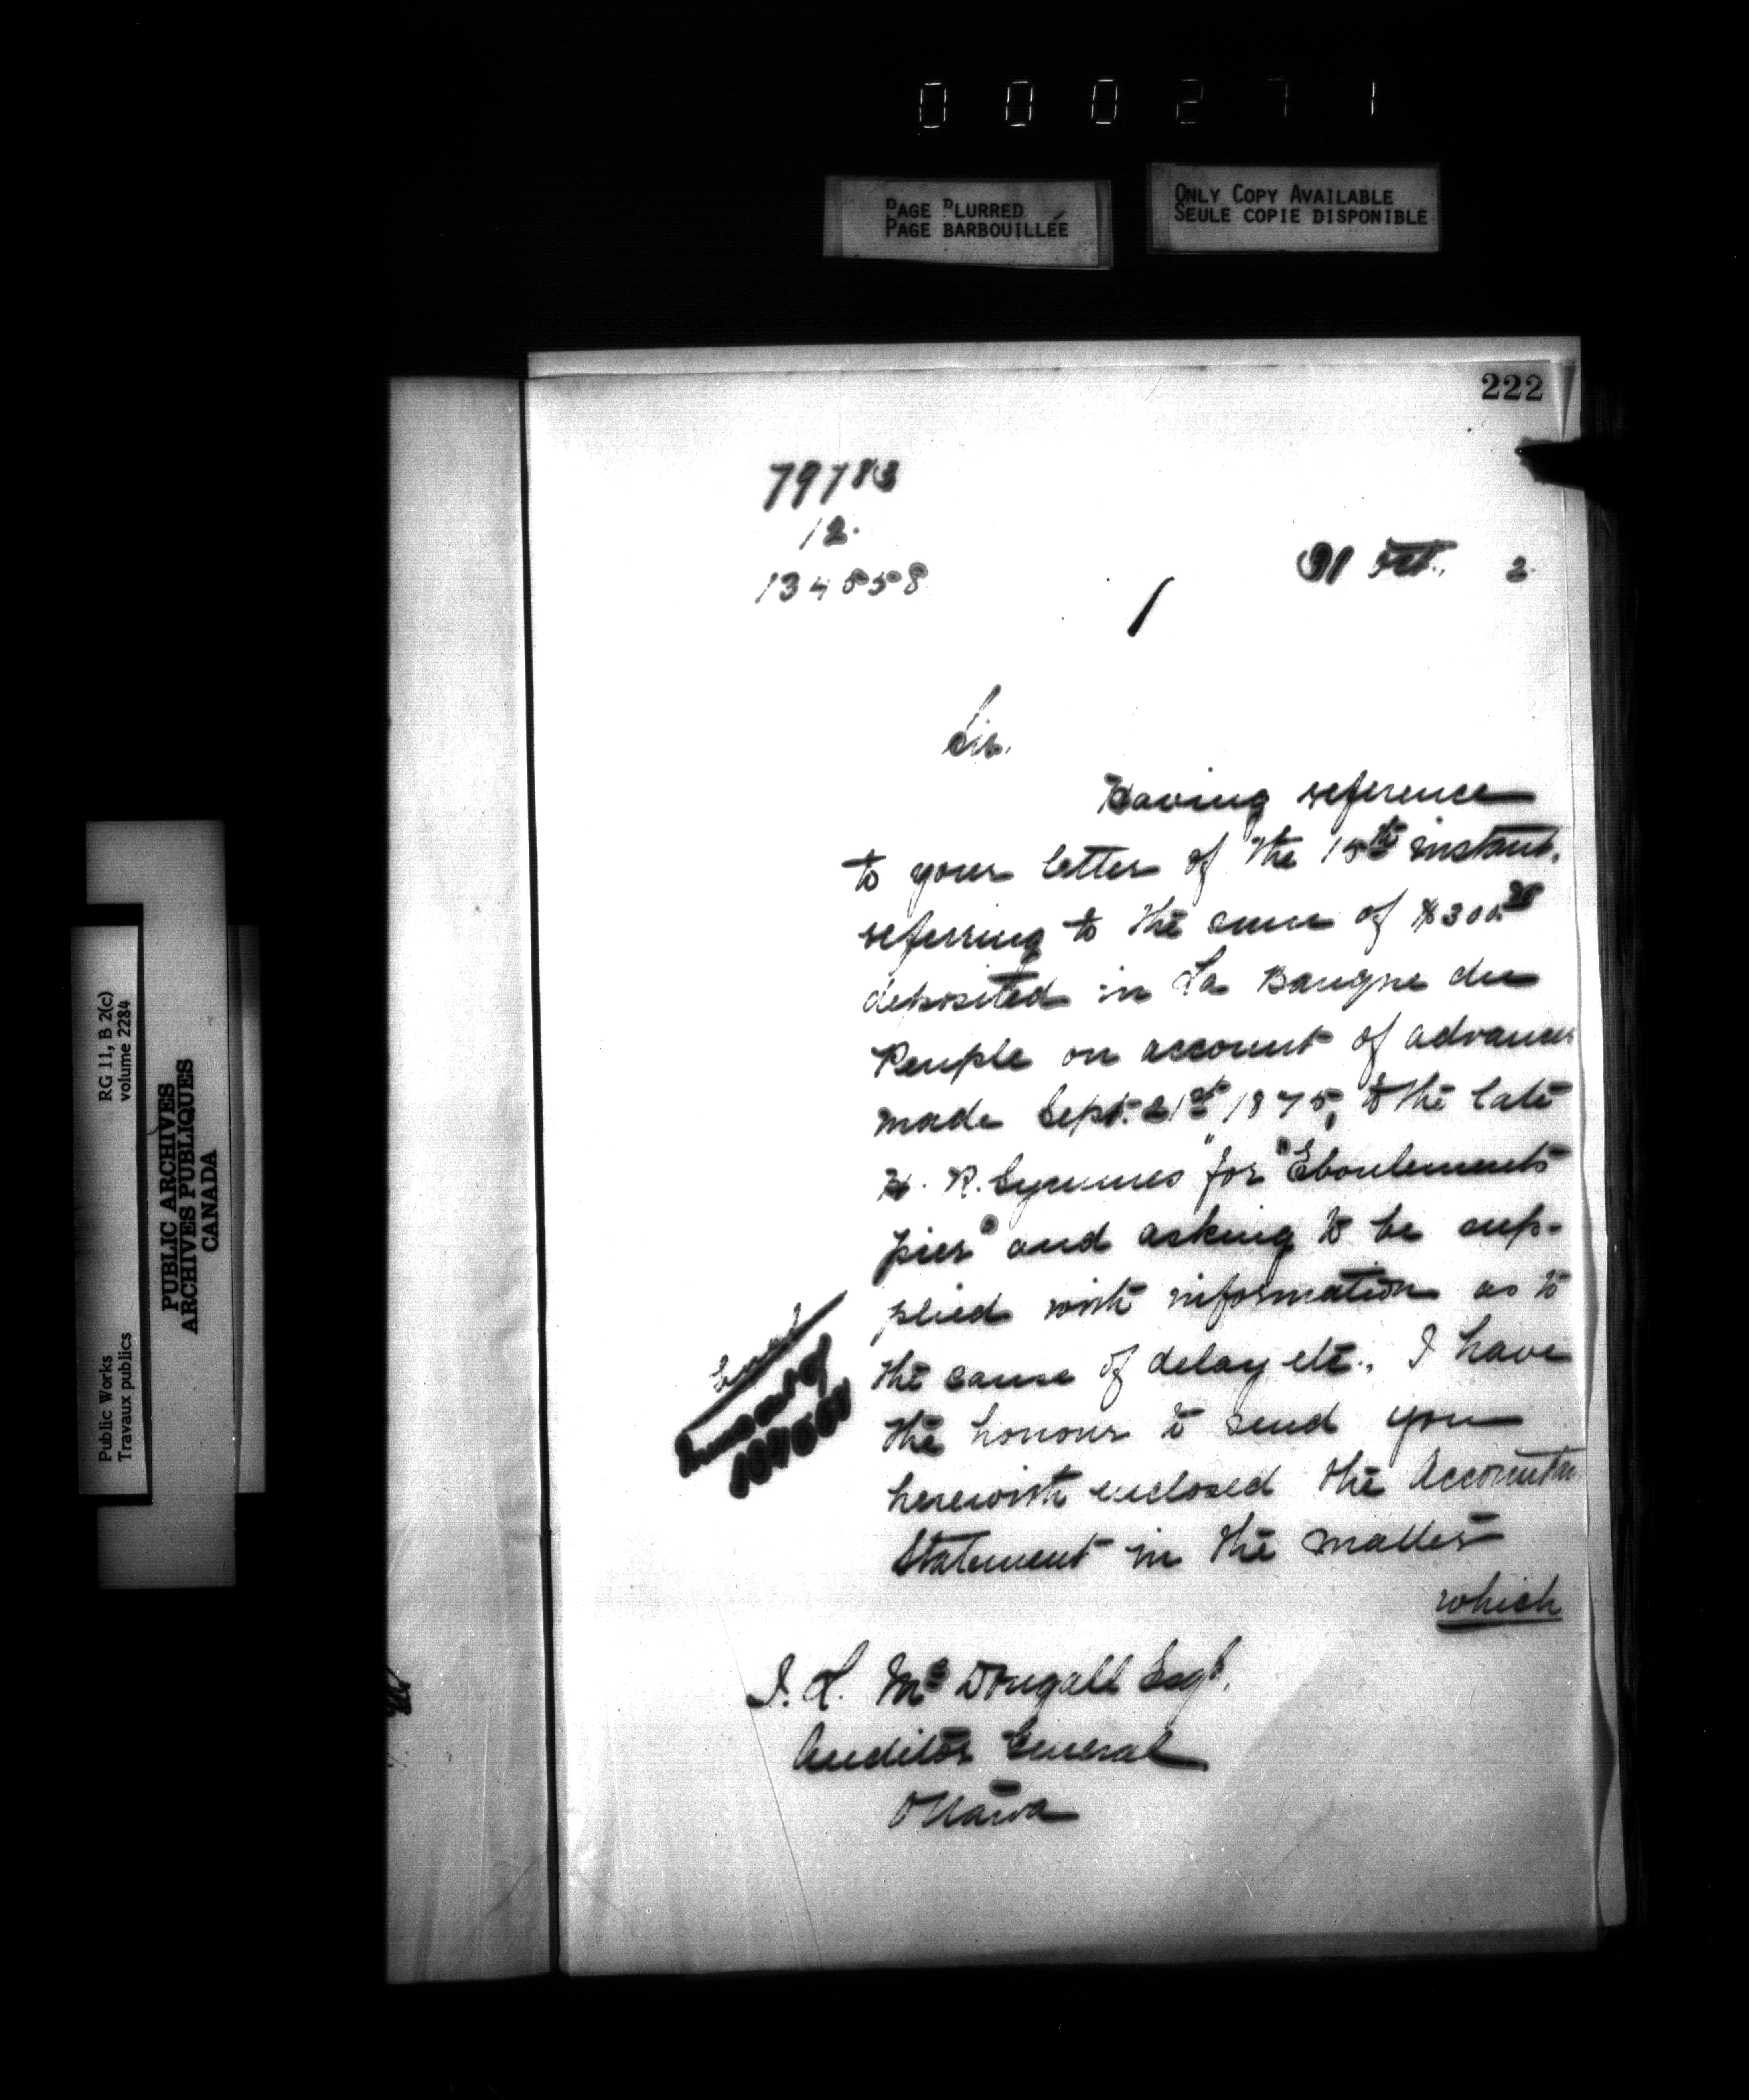 000271
PAGE BLURRED
PAGE BARBOUILLÉE
ONLY COPY AVAILABLE
SEULE COPIE DISPONIBLE
222
79783
12.
134558
31 Oct., 2.
Sir.
Having reference
to your letter of the 15th instant.
referring to the sum of $300.
deposited in La Banque du
Peuple on account of advances
made Sept. 21st 1875, to the late
H. R. Symmes "for "Eboulements
pier" and asking to be sup-
plied with information as to
the cause of delay etc., I have
the honour to send you
herewith enclosed the
Statement in the matter
which
J. L. McDougall Esqr.
Auditor General
Ottawa
Public Works
Travaux publics
RG 11, B 2(c)
volume 2284
PUBLIC ARCHIVES
ARCHIVES PUBLIQUES
CANADA